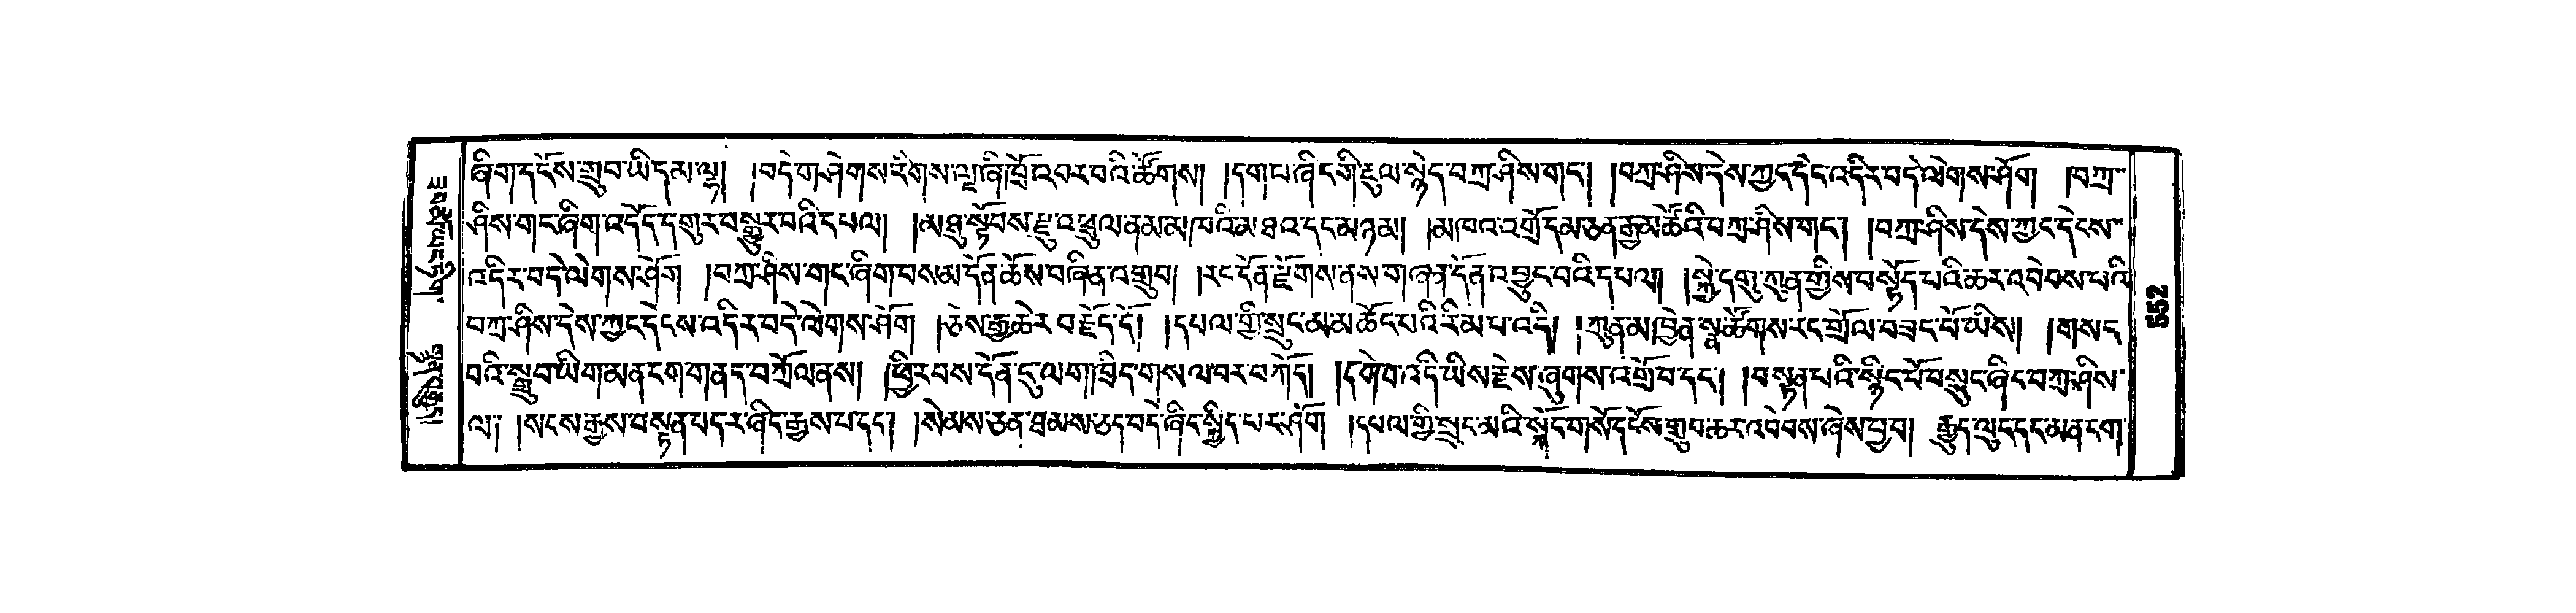 ཞིག་དངོས་གྲུབ་ཡི་དམ་ལྷ། །བདེ་གཤེགས་རིགས་ལྔ་ཞི་ཁྲོ་འབར་བའི་ཚོགས། །དག་པ་ཞིང་གི་རྡུལ་སྙེད་བཀྲ་ཤིས་གང་། །བཀྲ་ཤིས་དེས་ཀྱང་དེང་འདིར་བདེ་ལེགས་ཤོག །བཀྲ་
ཤིས་གང་ཞིག་འདོད་དགུར་བསྒྱུར་བའི་དཔལ། །མཐུ་སྟོབས་རྫུ་འཕྲུལ་ནམ་མཁའི་མཐའ་དང་མཉམ། །མཁའ་འགྲོ་དམ་ཅན་རྒྱ་མཚོའི་བཀྲ་ཤིས་གང་། །བཀྲ་ཤིས་དེས་ཀྱང་དེངས་
འདིར་བདེ་ལེགས་ཤོག །བཀྲ་ཤིས་གང་ཞིག་བསམ་དོན་ཆོས་བཞིན་འགྲུབ། །རང་དོན་རྫོགས་ནས་གཞན་དོན་འབྱུང་བའི་དཔལ། །སྐྱེ་དགུ་ཀུན་གྱིས་བསྟོད་པའི་ཆར་འབེབས་པའི
བཀྲ་ཤིས་དེས་ཀྱང་དེངས་འདིར་བདེ་ལེགས་ཤོག །ཅེས་རྒྱ་ཆེར་བརྗོད་དོ། །དཔལ་གྱི་སྲུང་མ་མཆོད་པའི་རིམ་པ་འདི། །ཀུན་མཁྱེན་སྣ་ཚོགས་རང་གྲོལ་བཟང་པོ་ཡིས། །གསང
བའི་སྒྲུབ་ཡིག་མན་ངག་གནད་བཀྲོལ་ནས། །ཕྱི་རབས་དོན་དུ་ལག་ཁྲིད་གསལ་བར་བཀོད། །དགེ་བ་འདི་ཡིས་རྗེས་ཞུགས་འགྲོ་བ་དང་། །བསྟན་པའི་སྙིང་པོ་བསྲུང་ཞིང་བཀྲ་ཤིས་
ལ། །སངས་རྒྱས་བསྟན་པ་དར་ཞིང་རྒྱས་པ་དང་། །སེམས་ཅན་ཐམས་ཅད་བདེ་ཞིང་སྐྱིད་པར་ཤོག །དཔལ་གྱི་སྲུང་མའི་སྐོང་གསོ་དངོས་གྲུབ་ཆར་འབེབས་ཞེས་བྱ་བ། རྒྱུད་ལུང་དང་མན་ངག་